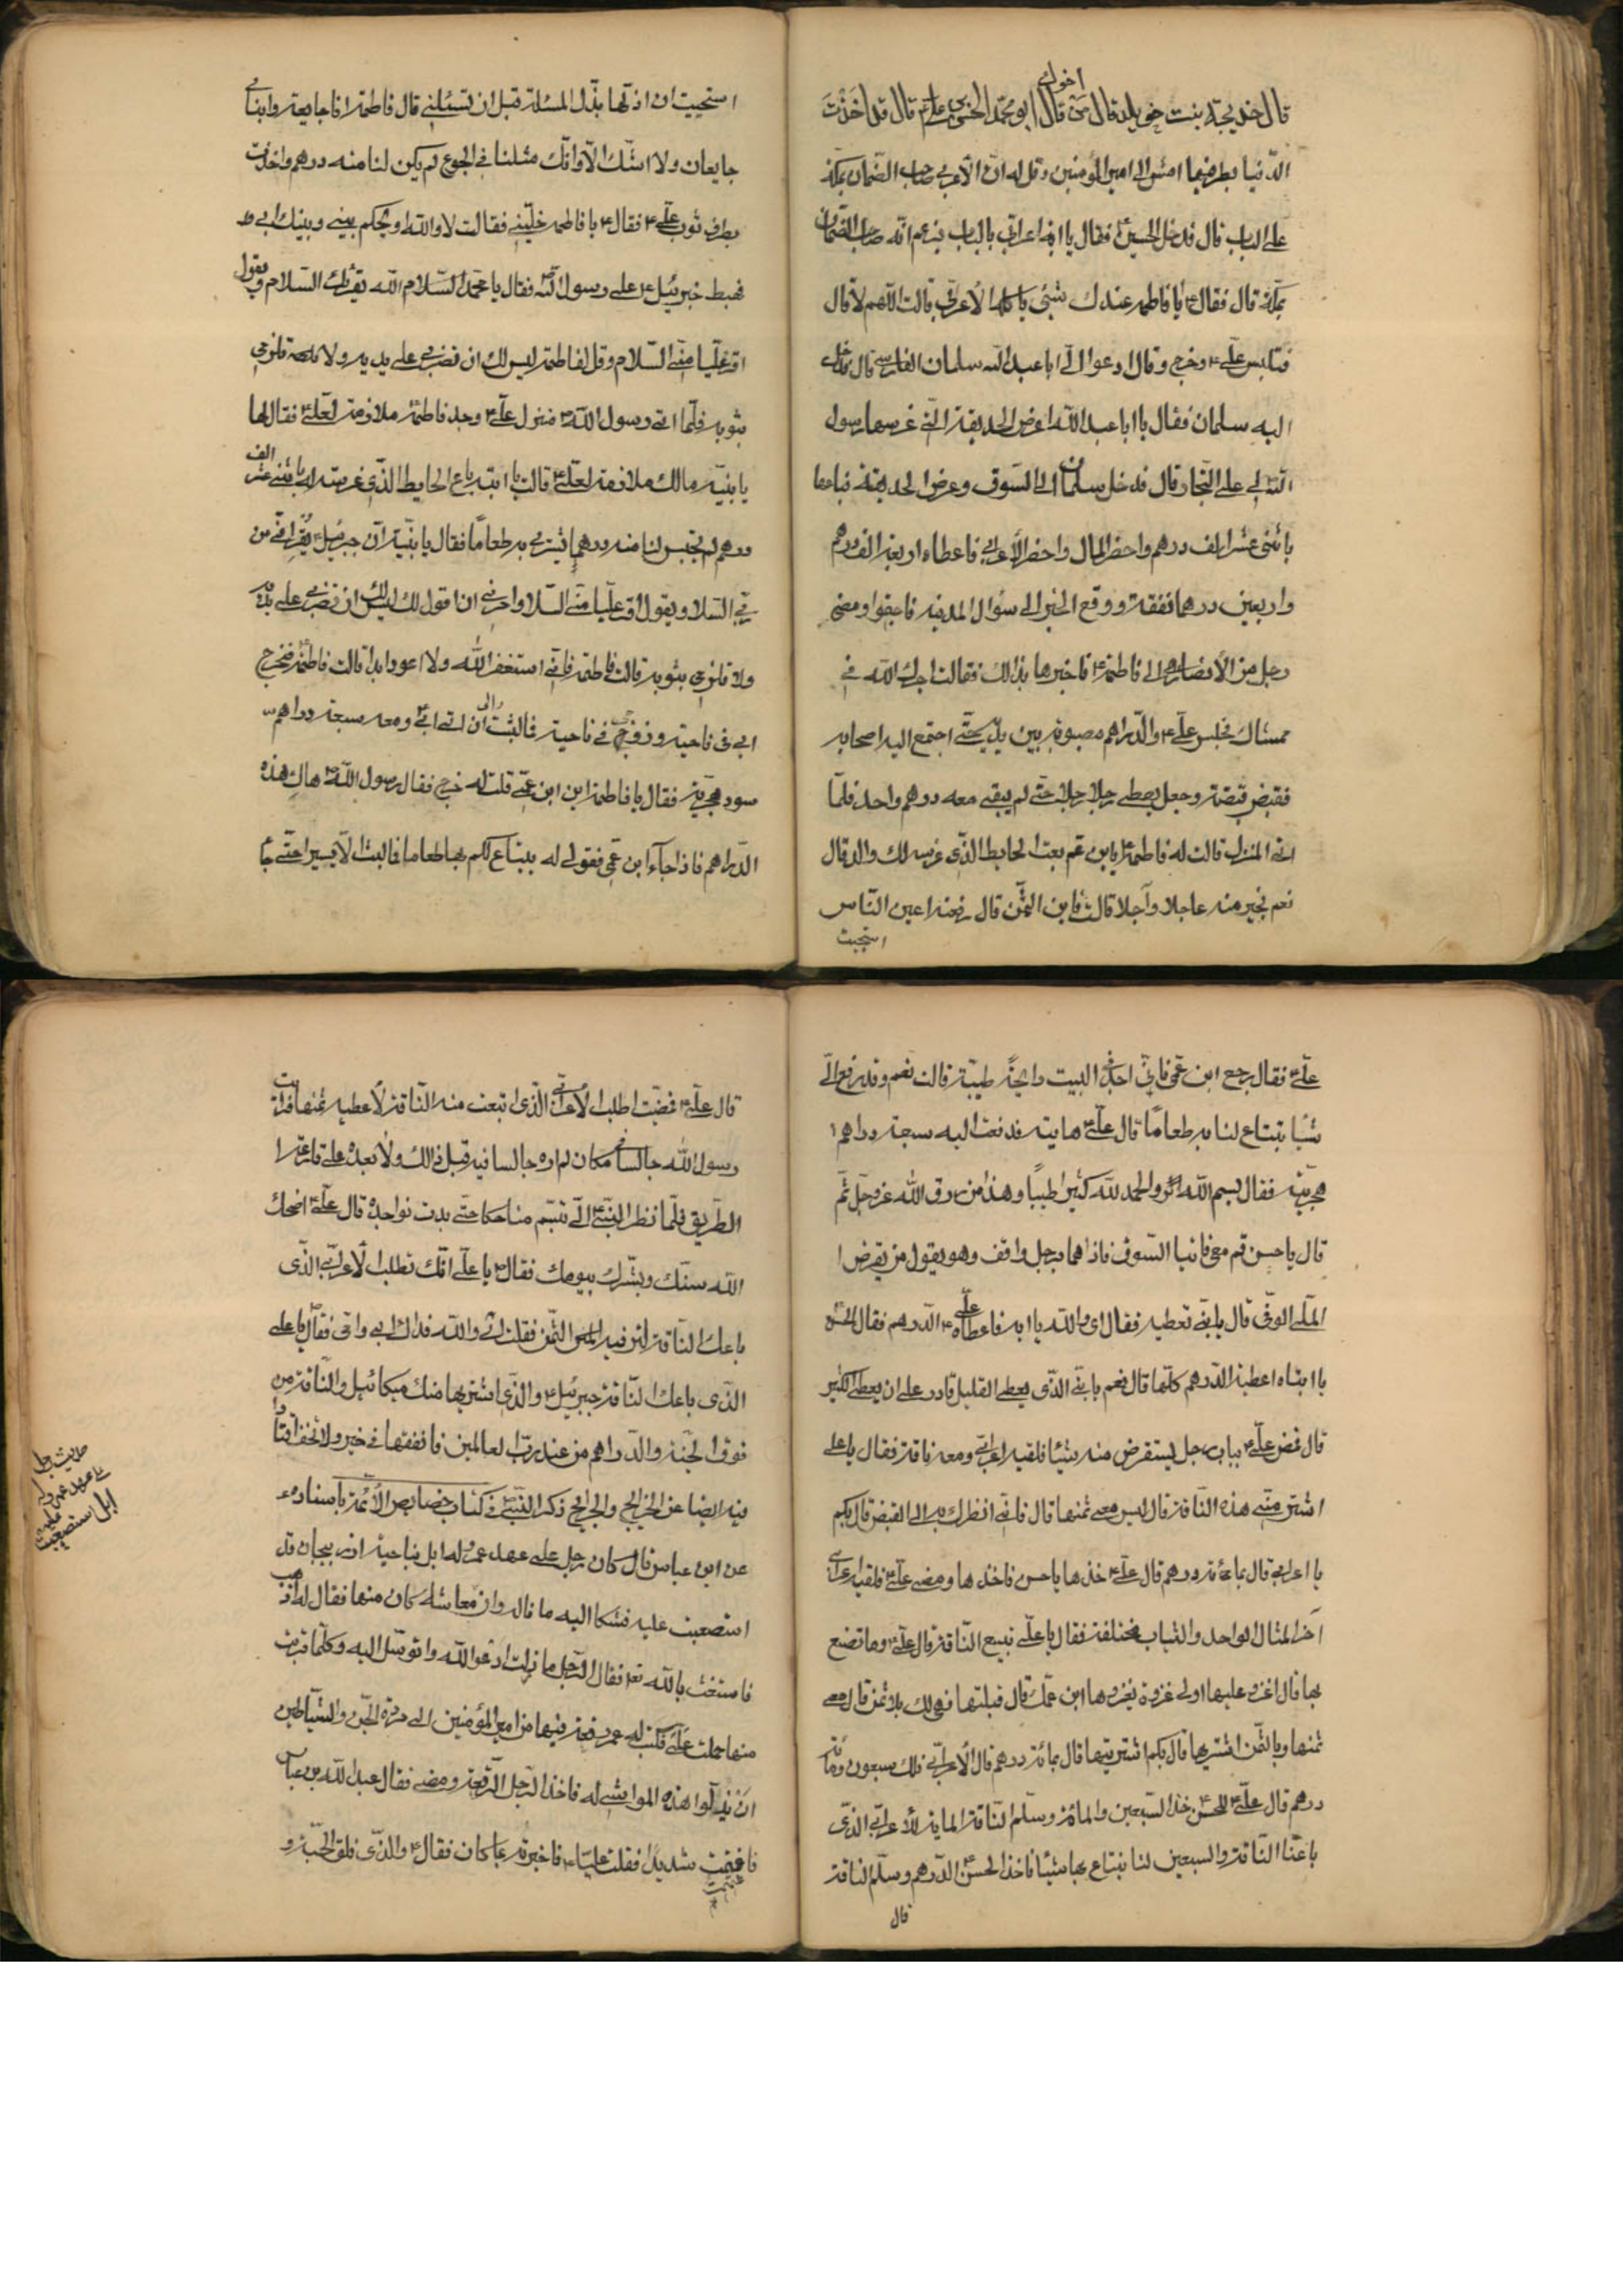 قال خديجة بنت خويلد قال من اخوك قال ابو محمد الحسن بن علي قال قد اخذت
الدنيا بطرفيها امش الى امير المؤمنين وقل له ان الاعرابي صاحب الضمان بمكة
على الباب قال فدخل الحسين فقال يا ابه اعرابي بالباب يزعم انه صاحب الضمان
بمكة قال فقال يا فاطمة عندك شيئ ياكله الاعرابي قالت اللهم لا قال
فتلبس علي وخرج وقال ادعوا الي ابا عبد الله سلمان الفارسي قال فدخل
اليه سلمان فقال يا ابا عبد الله اعرض الحديقة التي غرسها رسول
الله لي على التجار قال فدخل سلمان الى السوق وعرض الحديقة فباعها
باثنى عشر الف درهم واحضر المال واحضر الاعرابي فاعطاه اربعة الف درهم
واربعين درهما نفقة ووقع الخبر الى سؤال المدينة فاجتمعوا ومضى
رجل من الانصار الى فاطمة فاخبرها بذلك فقالت اجرك الله في
ممشاك فجلس علي والدراهم مصبوبة بين يديه حتى اجتمع اليه اصحابه
فقبض قبضة وجعل يعطي رجلا رجلا حتى لم يبقى معه درهم واحد فلما
اتى المنزل قالت له فاطمة يابن عم بعت الحايط الذي غرسه لك والدي قال
نعم بخير منه عاجلا وآجلا قالت فاين الثمن قال دفعته اعين الناس
استحييت
استحييت ان اذلها بذل المسئلة قبل ان تسئلني قال فاطمة انا جايعة وابناي
جايعان ولا اشك الا وانك مثلنا في الجوع لم يكن لنا منه درهم واخذت
بطرف ثوب علي فقال يا فاطمة خليني فقالت لا والله او يحكم بيني وبينك ابي
فهبط جبرئيل على رسول الله فقال يا محمد السلام الله يقرئك السلام ويقول
اقرء عليا مني السلام وقل لفاطمة ليس لك ان تضربي على يديه ولا تلزمي
بثوبه فلما اتى رسول الله منزل علي وجد فاطمة ملازمة لعلي فقال لها
يا بنية مالك ملازمة لعلي قالت يا ابه باع الحايط الذي غرسته له باثني عشر الف
درهم لم يحبس لنا منه درهما نشتري به طعاما فقال يا بنية ان جبرئيل يقرئني من
ربي السلام ويقول اقرء عليا مني السلام وامرني ان اقول لك ليس لك ان تضربي على يديه
ولا تلزمي بثوبه قالت فاطمة فاني استغفر الله ولا اعود ابدا قالت فاطمة فخرج
ابي في ناحية وزوجي في ناحية فما لبثت ان اتى ابي ومعه سبعة دراهم
سود هجرية فقال يا فاطمة اين ابن عمي قلت له خرج فقال رسول الله هاك هذه
الدراهم فاذا جاء ابن عمي فقولي له يبتاع لكم بها طعاما فما لبث الا يسيرا حتى جاء
علي فقال رجع ابن عمي فاني اجد في البيت رايحة طيبة قالت نعم وقد دفع الي
شيئا تبتاع لنا به طعاما قال علي هاتيه فدفعت اليه سبعة دراهم
هجرية فقال بسم الله والحمد لله كثيرا طيبا وهذا من رزق الله عز وجل ثم
قال يا حسن قم معي فاتيا السوق فاذا هما برجل واقف وهو يقول من يقرض
الملي الوفي قال يا بني تعطيه فقال اي والله يا ابه فاعطاه علي الدرهم فقال الحسن
يا ابتاه اعطيته الدرهم كلها قال نعم يا بني الذي يعطي القليل قادر على ان يعطي الكثير
قال فمضى علي بباب رجل يستقرض منه شيئا فلقيه اعرابي ومعه ناقة فقال يا علي
اشتر مني هذه الناقة قال ليس معي ثمنها قال فاني انظرك به الى القبض قال بكم
يا اعرابي قال بمائة درهم قال علي خذها يا حسن فاخذها ومضى علي فلقيه اعرابي
آخر المثال الواحد والثياب مختلفة فقال يا علي تبيع الناقة قال علي وما تصنع
بها قال اغزو عليها اولى غزوة يغزوها ابن عمك قال ان قبلتها فهي لك بلا ثمن قال معي
ثمنها وبالثمن اشتريها قال بكم اشتريتها قال بمائة درهم قال الاعرابي فلك سبعون ومائة
درهم قال علي للحسن خذ السبعين والمائة وسلم الناقة المائة للاعرابي الذي
باعنا الناقة والسبعين لنا نبتاع بها شيئا فاخذ الحسن الدرهم وسلم الناقة
قال
قال علي فمضيت اطلب الاعرابي الذي ابتعت منه الناقة لاعطيه ثمنها فرايت
رسول الله جالسا في مكان لم اره جالسا فيه قبل ذلك ولا بعده على قارعة
الطريق فلما نظر النبي الي تبسم ضاحكا حتى بدت نواجذه قال علي اضحك
الله سنك وبشرك بيومك فقال يا علي انك تطلب الاعرابي الذي
باعك الناقة لتوفيه الثمن فقلت اي والله فداك ابي وامي فقال يا علي
الذي باعك الناقة جبرئيل والذي اشتريها منك ميكائيل والناقة من
نوق الجنة والدراهم من عند رب العالمين فانفقها في خير ولا تخف اقتارا
فيه ايضا عن الخرايج والجرايح ذكر النبي في كتاب خصايص الائمة باسناده
عن ابن عباس قال كان رجل على عهد عمر وله ابل بناحية اذربيجان قد
استصعبت عليه فشكا اليه ما ناله وان معاشه كان منها فقال له اذهب
فاستغث بالله تعا فقال الرجل ما زلت ادعو الله واتوسل اليه وكلما قربت
منها حملت علي فكتب له عمر رقعة فيها من امير المؤمنين الى مردة الجن والشياطين
ان تذللوا هذه المواشي له فاخذ الرجل الرقعة ومضى فقال عبد الله بن عباس
فاغتممت شديدا فقلت عليا فاخبرته بما كان فقال والذي فلق الحبة و
حديث رجل
على عهد عمر وله
ابل استصعبت
عليه